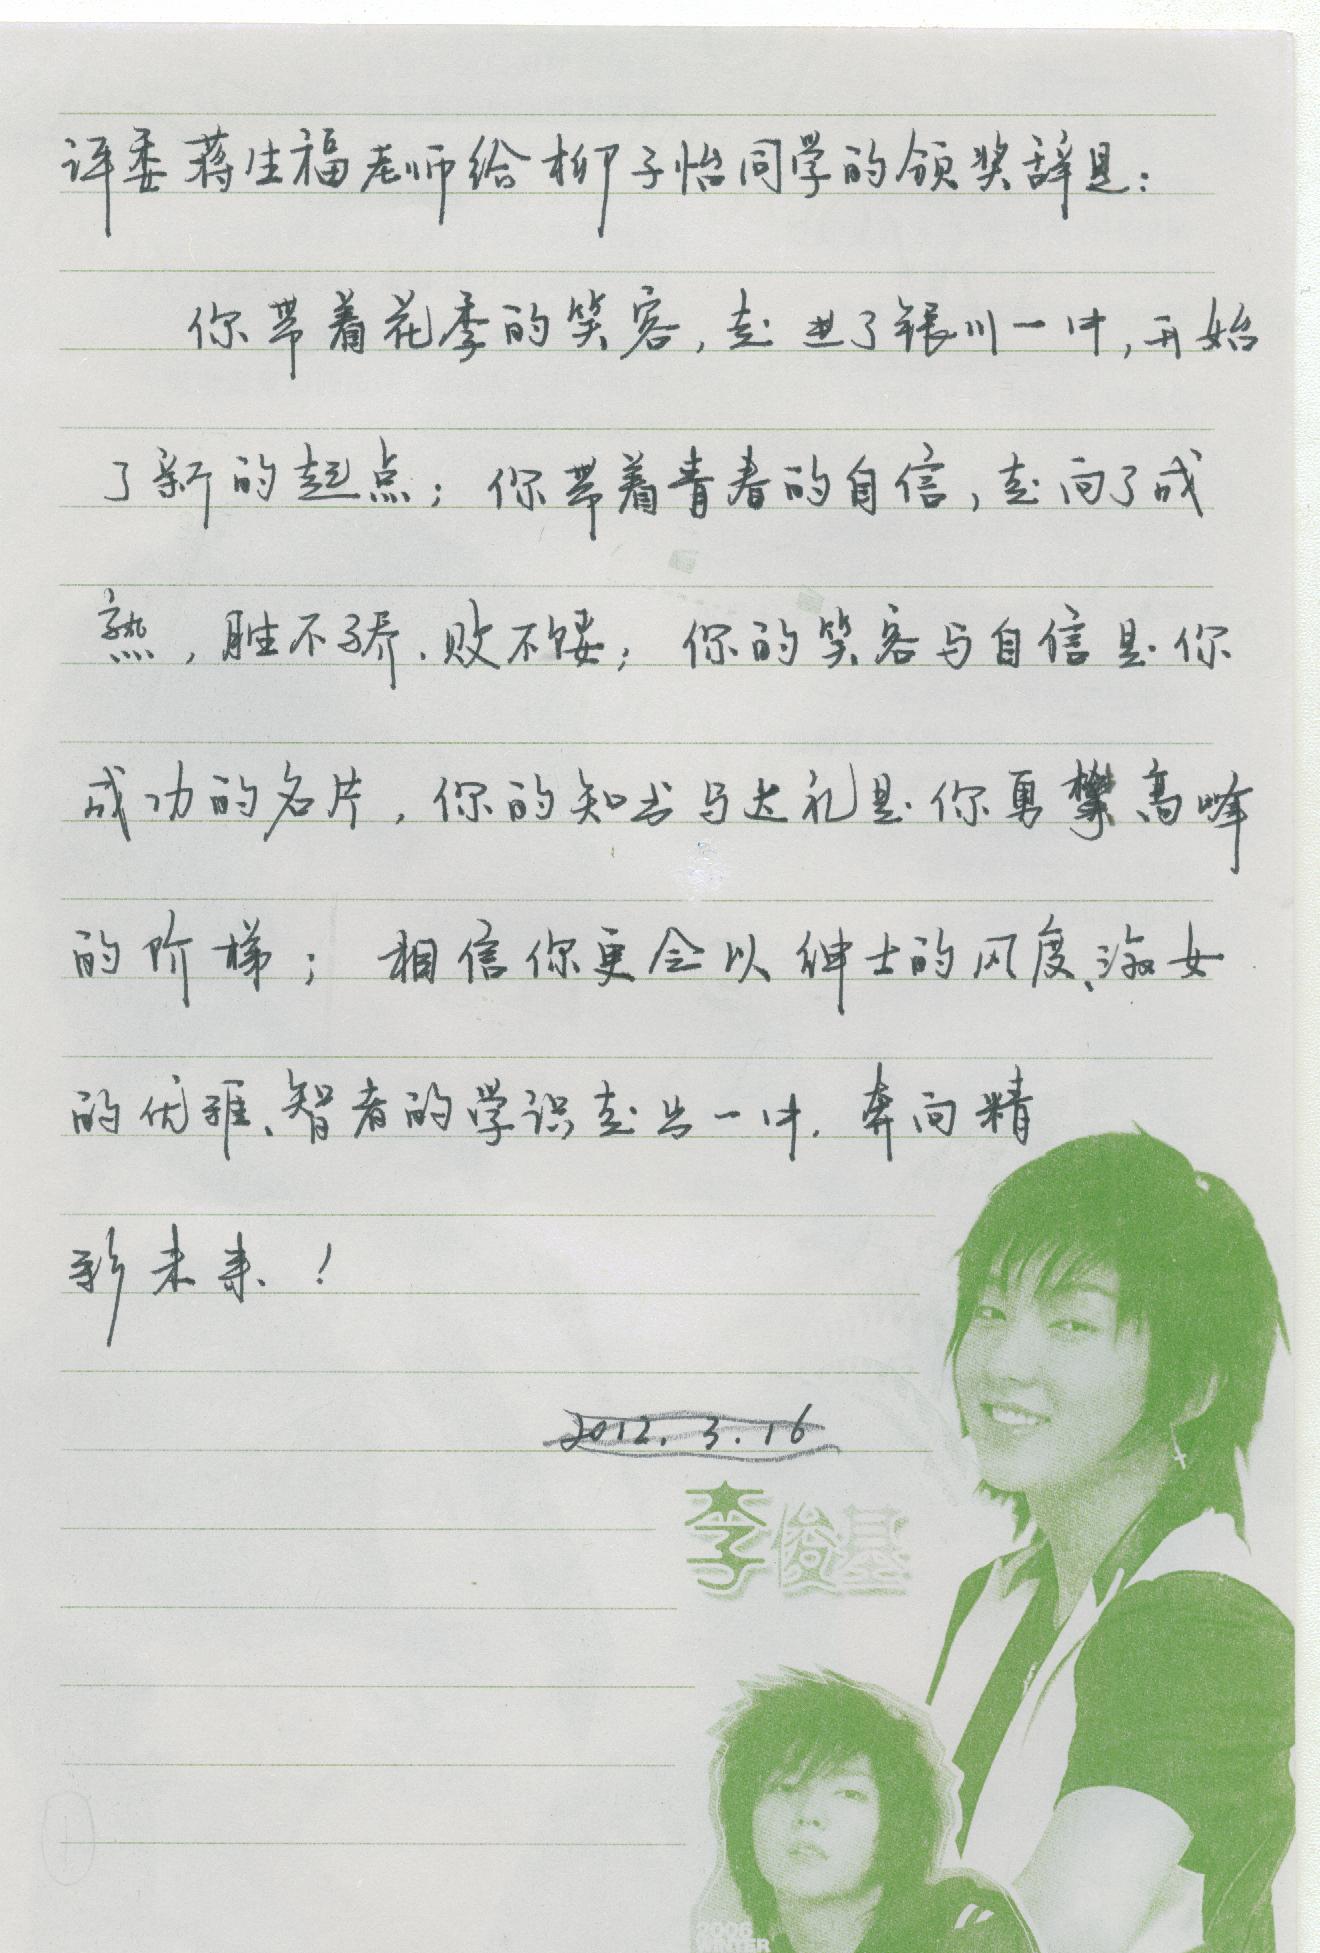 评委蒋生福老师给柳子怡同学的颁奖辞是：
你带着花季的笑容，走进了银川一中，开始
了新的起点；你带着青春的自信，走向了成
熟，胜不骄、败不馁；你的笑容与自信是你
成功的名片，你的知书与达礼是你勇攀高峰
的阶梯；相信你更会以绅士的风度、淑女
的优雅、智者的学识走出一中，奔向精
彩未来！
2012.3.16
李俊基
2006
WINTER